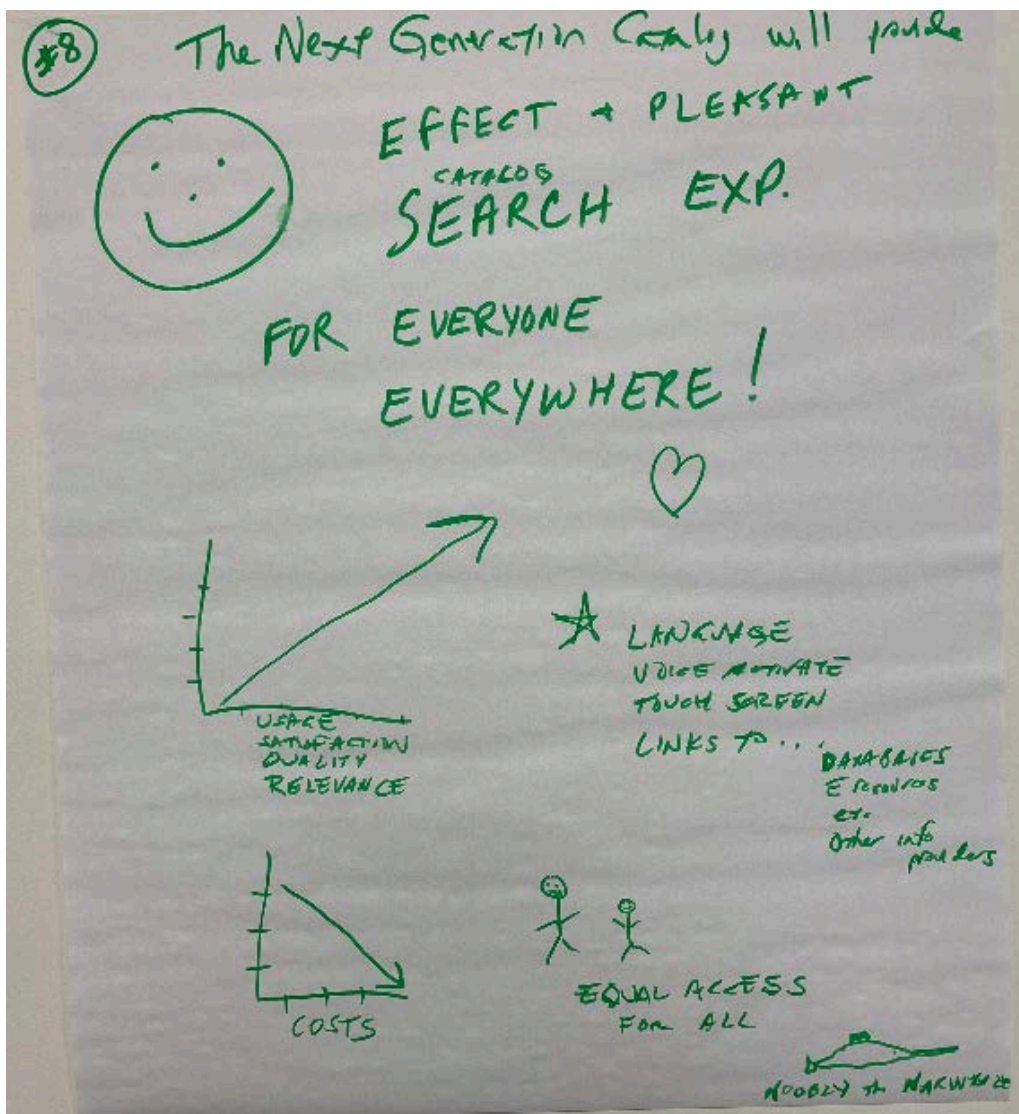 #8 The Next Generation Catalog will provide
EFFECT + PLEASANT
CATALOG
SEARCH EXP.
FOR EVERYONE
EVERYWHERE!
USAGE
SATISFACTION
QUALITY
RELEVANCE
LANGUAGE
VOICE ACTIVATE
TOUCH SCREEN
LINKS TO...
DATABASES
E resources
etc.
Other info
providers
COSTS
EQUAL ACCESS
FOR ALL
THE